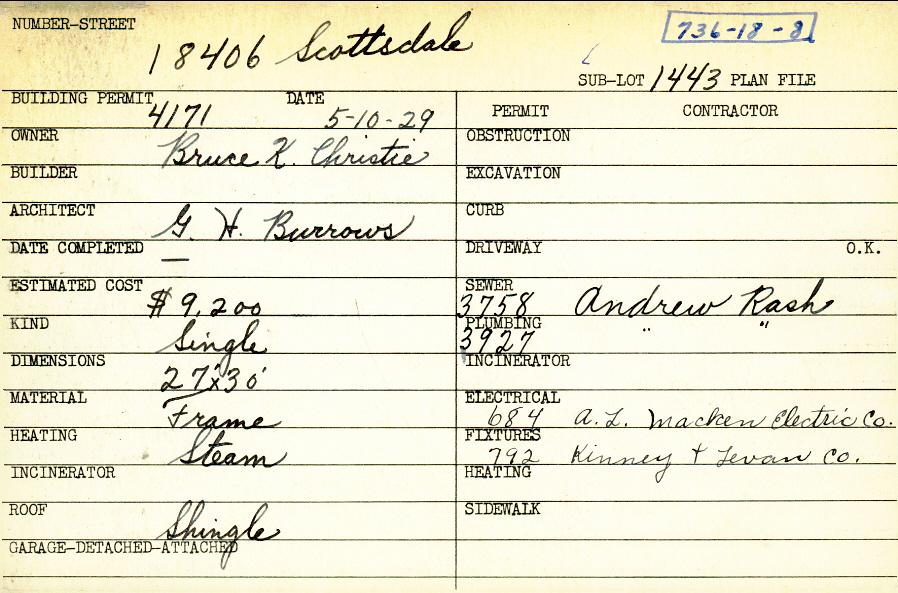 NUMBER-STREET
18406 Scottsdale
736-18-8
SUB-LOT 1443 PLAN FILE
BUILDING PERMIT 4171 DATE 5-10-29
OWNER Bruce K. Christie
BUILDER
ARCHITECT G. H. Burrows
DATE COMPLETED —
ESTIMATED COST $9,200
KIND Single
DIMENSIONS 27'x30'
MATERIAL Frame
HEATING Steam
INCINERATOR
ROOF Shingle
GARAGE-DETACHED-ATTACHED
PERMIT CONTRACTOR
OBSTRUCTION
EXCAVATION
CURB
DRIVEWAY O.K.
SEWER 3758 Andrew Rash
PLUMBING 3927 " "
INCINERATOR
ELECTRICAL 684 A. L. Macken Electric Co.
FIXTURES 792 Kinney + Levan Co.
HEATING
SIDEWALK